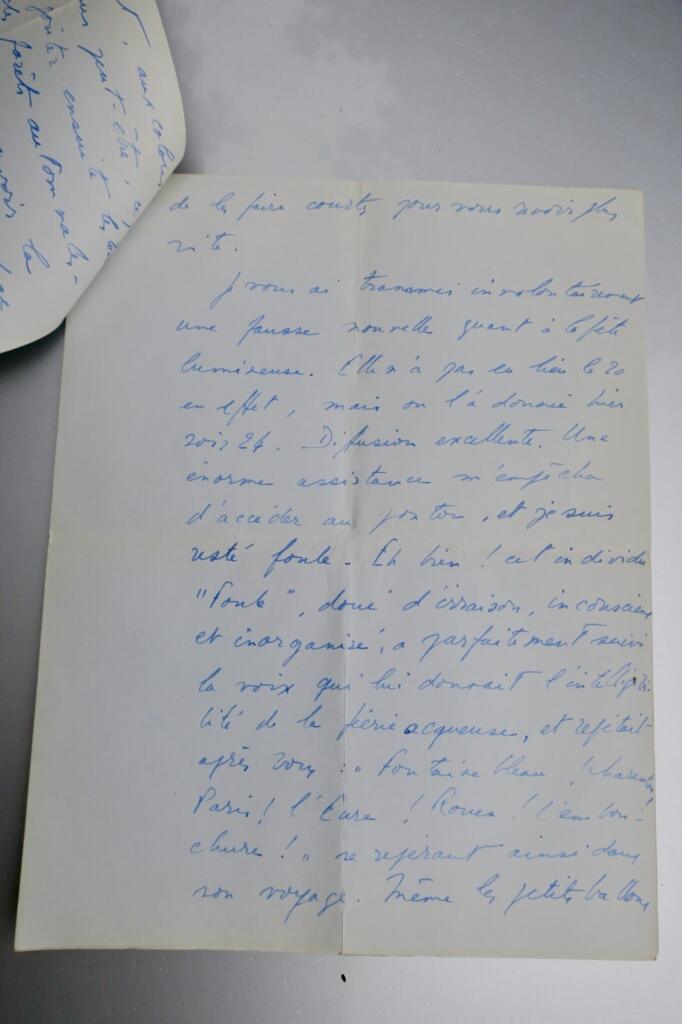 t, aux colori
peut-être, a
ensuite
forêt autom nales-
la
de les faire courts pour vous revoir plus
vite.
Je vous ai transmis involontairement
une fausse nouvelle quant à la fête
lumineuse. Elle n'a pas eu lieu le 20
en effet, mais on l'a donnée hier
soir 24. Difusion excellente. Une
énorme assistance m'empêcha
d'accéder au ponton, et je suis
resté foule. Eh bien ! cet individu
"Foule", doué d'irraison, inconscient
et inorganisé, a parfaitement suivi
la voix qui lui donnait l'intelligibi
lité de la féérie acqueuse, et répétait
après vous : "Fontainebleau ! Charenton,
Paris ! l'Eure ! Rouen ! l'embou-
chure ! " se repérant ainsi dans
son voyage. Même les petits ballons